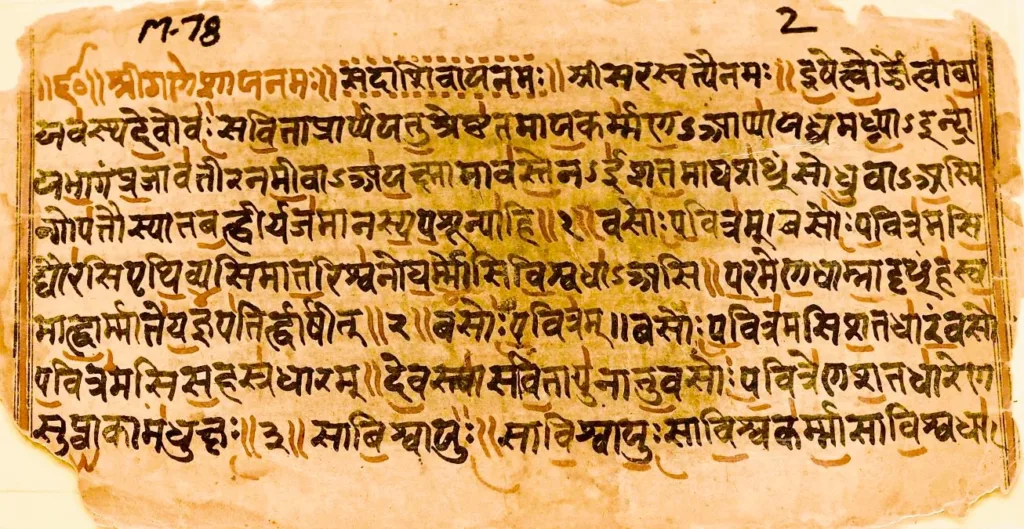 M-78 2
॥ॐ॥ श्रीगणेशायनमः॥ सदाशिवायनमः॥ श्रीसरस्वत्यैनमः॥ इषेत्वोर्ज्जेत्वावा
यवस्थदेवोवः सविताप्रार्प्पयतुश्रेष्ठतमायकर्म्मणऽआप्यायध्वमघ्न्याऽइन्द्रा
यभागंप्रजावतीरनमीवाऽअयक्ष्मामावस्तेनऽईशतमाघशꣳसोध्रुवाऽअस्मि
न्गोपतौस्यातबह्वीर्यजमानस्यपशून्पाहि॥१॥ वसोःपवित्रम्। वसोःपवित्रमसि
द्यौरसिपृथिव्यसिमातरिश्वनोघर्म्मोसिविश्वधाऽअसि॥ परमेणधाम्नादृꣳहस्व
माह्वार्म्मातेयज्ञपतिर्ह्वार्षीत्॥२॥ वसोःपवित्रम्॥ वसोःपवित्रमसिशतधारंवसोः
पवित्रमसिसहस्रधारम्॥ देवस्त्वासवितापुनातुवसोःपवित्रेणशतधारेण
सुप्वाकामधुक्षः॥३॥ साविश्वायुः॥ साविश्वायुःसाविश्वकर्म्मासाविश्वधा